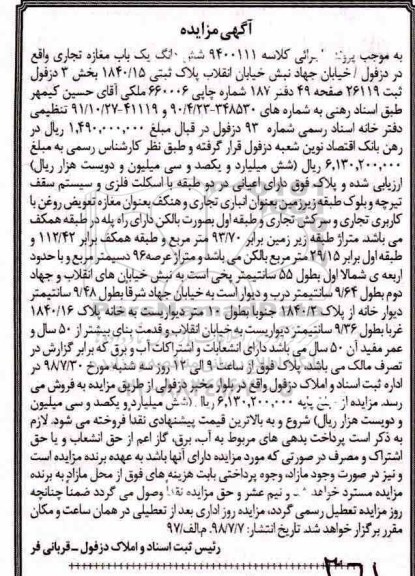 آگهی مزایده
به موجب پرونده اجرائی کلاسه ۹۴۰۰۱۱۱ شش دانگ یک باب مغازه تجاری واقع
در دزفول / خیابان جهاد نبش خیابان انقلاب پلاک ثبتی ۱۸۴۰/۱۵ بخش ۳ دزفول
ثبت ۲۶۱۱۹ صفحه ۴۹ دفتر ۱۸۷ شماره چاپی ۶۶۰۰۰۶ ملکی آقای حسین کیمهر
طبق اسناد رهنی به شماره های ۳۴۸۵۳۰-۹۰/۴/۲۳ و ۴۱۱۱۹-۹۱/۱۰/۲۷ تنظیمی
دفتر خانه اسناد رسمی شماره ۹۳ دزفول در قبال مبلغ ۱,۴۹۰,۰۰۰,۰۰۰ ریال در
رهن بانک اقتصاد نوین شعبه دزفول قرار گرفته و طبق نظر کارشناس رسمی به مبلغ
۶,۱۳۰,۲۰۰,۰۰۰ ریال (شش میلیارد و یکصد و سی میلیون و دویست هزار ریال)
ارزیابی شده و پلاک فوق دارای اعیانی در دو طبقه با اسکلت فلزی و سیستم سقف
تیرچه و بلوک طبقه زیرزمین بعنوان انباری تجاری و همکف بعنوان مغازه تعویض روغن با
کاربری تجاری و سرکش تجاری و طبقه اول بصورت بالکن دارای راه پله در طبقه همکف
می باشد. متراژ طبقه زیر زمین برابر ۹۳/۷۰ متر مربع و طبقه همکف برابر ۱۱۲/۴۲ و
طبقه اول برابر ۲۹/۱۵ متر مربع بالکن می باشد و متراژ عرصه ۹۶ دسیمتر مربع و با حدود
اربعه ی شمالا اول بطول ۵۵ سانتیمتر پخی است به نبش خیابان های انقلاب و جهاد
دوم بطول ۹/۶۴ سانتیمتر درب و دیوار است به خیابان جهاد شرقا بطول ۹/۴۸ سانتیمتر
دیوار خانه از پلاک ۱۸۴۰/۲ جنوبا بطول ۱۰ متر دیواریست به خانه پلاک ۱۸۴۰/۱۶
غربا بطول ۹/۳۶ سانتیمتر دیواریست به خیابان انقلاب و قدمت بنای بیشتر از ۵۰ سال و
عمر مفید آن ۵۰ سال می باشد دارای انشعابات و اشتراکات آب و برق که برابر گزارش در
تصرف مالک می باشد. پلاک فوق از ساعت ۹ الی ۱۲ روز سه شنبه مورخ ۹۸/۷/۳۰ در
اداره ثبت اسناد و املاک دزفول واقع در بلوار مخبر دزفولی از طریق مزایده به فروش می
رسد. مزایده از مبلغ پایه ۶,۱۳۰,۲۰۰,۰۰۰ ریال (شش میلیارد و یکصد و سی میلیون
و دویست هزار ریال) شروع و به بالاترین قیمت پیشنهادی نقدا فروخته می شود. لازم
به ذکر است پرداخت بدهی های مربوط به آب، برق، گاز اعم از حق انشعاب و یا حق
اشتراک و مصرف در صورتی که مورد مزایده دارای آنها باشد به عهده برنده مزایده است
و نیز در صورت وجود مازاد، وجوه پرداختی بابت هزینه های فوق از محل مازاد به برنده
مزایده مسترد خواهد شد و نیم عشر و حق مزایده نقدا وصول می گردد ضمنا چنانچه
روز مزایده تعطیل رسمی گردد، مزایده روز اداری بعد از تعطیلی در همان ساعت و مکان
مقرر برگزار خواهد شد. تاریخ انتشار: ۹۸/۷/۷. م/الف/۹۷
رئیس ثبت اسناد و املاک دزفول - قربانی فر